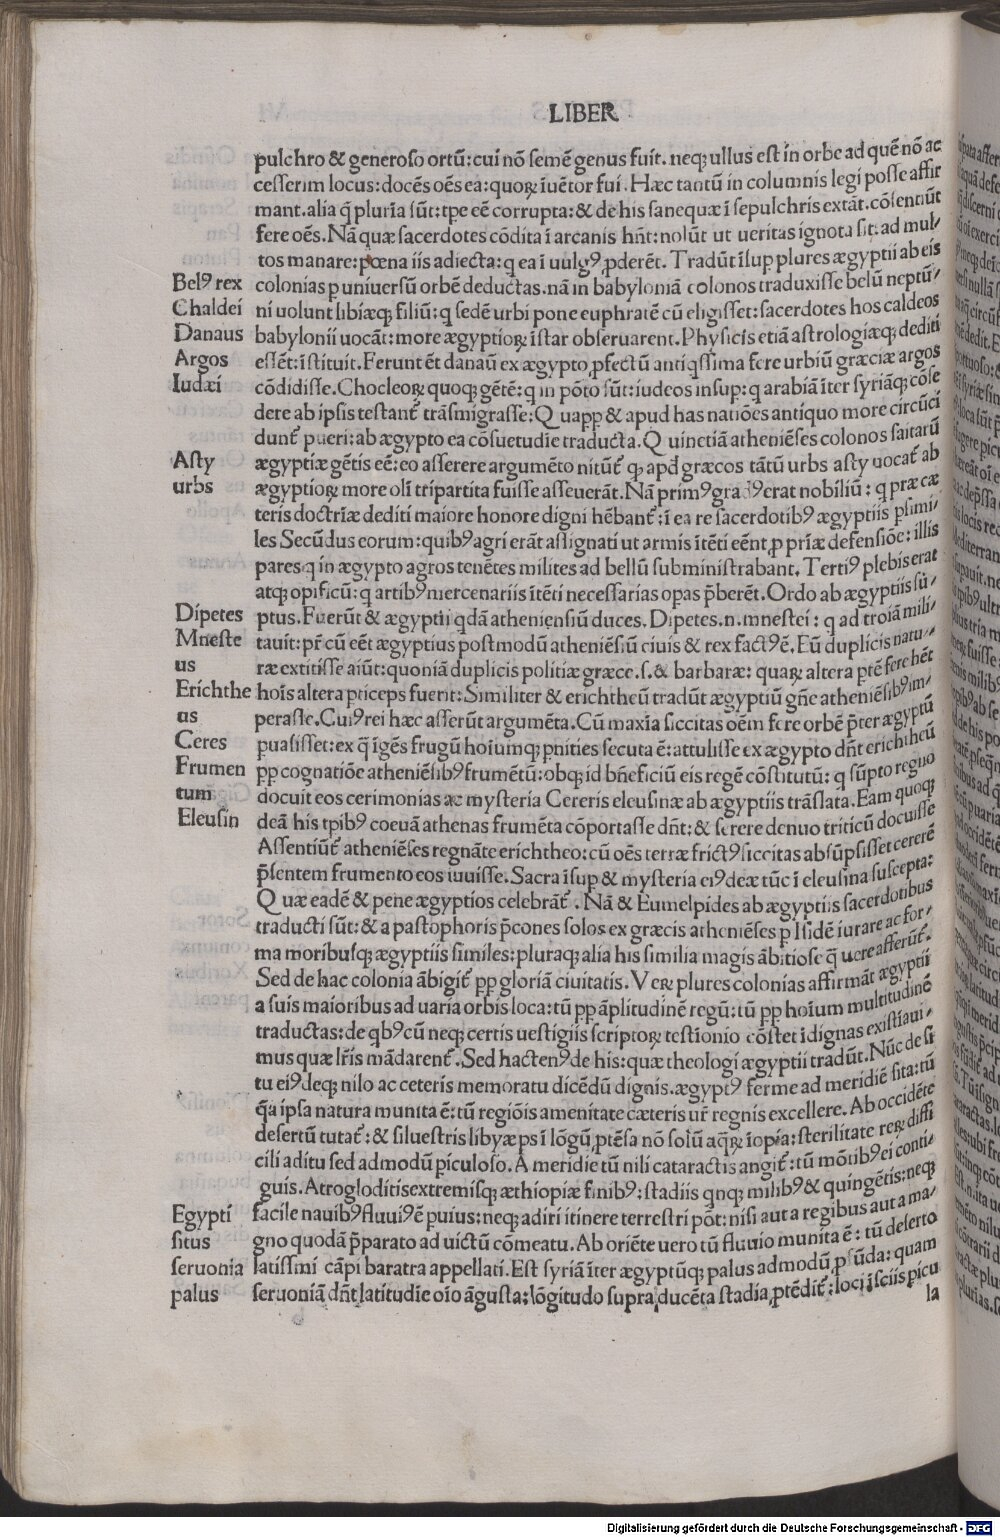 LIBER
pulchro & generoso ortū: cui nō semē genus fuit. neq; ullus est in orbe ad quē nō ac
cesserim locus: docēs oēs ea: quoꝝ īuētor fui. Hæc tantū in columnis legi posse affir
mant. alia q̄ pluria sūt: tpe eē corrupta: & de his sanequæ ī sepulchris extāt. cōsentiūt
fere oēs. Nā quæ sacerdotes cōdita ī arcanis hñt: nolūt ut ueritas ignota sit: ad mul-
tos manare: pœna iis adiecta: q ea ī uulgꝰ ꝓderēt. Tradūt īsup plures ægyptii ab eis
Belꝰ rex colonias p uniuersū orbē deductas. nā in babyloniā colonos traduxisse belū neptū-
Chaldei ni uolunt libiæq; filiū: q sedē urbi pone euphratē cū eligisset: sacerdotes hos caldeos
Danaus babylonii uocāt: more ægyptioꝝ īstar obseruarent. Physicis etiā astrologiæq; dediti
Argos essēt: īstituit. Ferunt ēt danaū ex ægypto ꝓfectū antiqssima fere urbiū græciæ argos
Iudæi cōdidisse. Chocleoꝝ quoq; gētē: q in pōto sūt: iudeos insup: q arabiā īter syriāq; cōse
dere ab ipsis testant̄ trāsmigrasse: Quapp & apud has natiōes antiquo more circūci
dunt̄ pueri: ab ægypto ea cōsuetudie traducta. Quinetiā atheniēses colonos saitarū
Asty ægyptiæ gētis eē: eo asserere argumēto nitūt̄ q apd græcos tātū urbs asty uocat̄ ab
urbs ægyptioꝝ more oli tripartita fuisse asseuerāt. Nā primꝰ gradꝰ erat nobiliū: q præcæ
teris doctriæ dediti maiore honore digni hēbant̄: ī ea re sacerdotibꝰ ægyptiis psimi-
les Secūdus eorum: quibꝰ agri erāt assignati ut armis ītēti eēnt ꝓ priæ defensiōe: illis
pares q in ægypto agros tenētes milites ad bellū subministrabant. Tertiꝰ plebis erat
atq; opificū: q artibꝰ mercenariis ītēti necessarias opas p̄berēt. Ordo ab ægyptiis sū-
Dipetes ptus. Fuerūt & ægyptii qdā atheniensiū duces. Dipetes. n. mnestei: q ad troiā mili-
Mneste tauit: pr̄ cū eēt ægyptius postmodū atheniēsiū ciuis & rex factꝰ ē. Eū duplicis natu-
us ræ extitisse aiūt: quoniā duplicis politiæ græce. s. & barbaræ: quaꝝ altera ptē fere hēt
Erichthe hois altera priceps fuerit: Similiter & erichtheū tradūt ægyptiū gñe atheniēsibꝰ im-
us perasse. Cuiꝰ rei hæc afferūt argumēta. Cū maxia siccitas oēm fere orbē p̄ter ægyptū
Ceres puasisset: ex q̄ īgēs frugū hoiumq; pnities secuta ē: attulisse ex ægypto dñt erichtheū
Frumen pp cognatiōe atheniēsibꝰ frumētū: obq; id bñeficiū eis regē cōstitutū: q sūpto regno
tum docuit eos cerimonias ac mysteria Cereris eleusinæ ab ægyptiis trāslata. Eam quoq;
Eleusin deā his tpibꝰ coeuā athenas frumēta cōportasse dñt: & serere denuo triticū docuisse
Assentiūt̄ atheniēses regnāte erichtheo: cū oēs terræ frictꝰ siccitas absūpsisset cererē
p̄sentem frumento eos iuuisse. Sacra īsup & mysteria eiꝰ deæ tūc ī eleusina suscepta:
Quæ eadē & pene ægyptios celebrāt̄. Nā & Eumelpides ab ægyptiis sacerdotibus
traducti sūt: & a pastophoris p̄cones solos ex græcis atheniēses p Isidē iurare ac for-
ma moribusq; ægyptiis similes: pluraq; alia his similia magis ābitiose q̄ uere afferūt̄.
Sed de hac colonia ābigit̄ pp gloriā ciuitatis. Veꝝ plures colonias affirmāt ægyptii
a suis maioribus ad uaria orbis loca: tū pp āplitudinē regū: tū pp hoium multitudinē
traductas: de qbꝰ cū neq; certis uestigiis scriptoꝝ testionio cōstet īdignas existiaui-
mus quæ lr̄is mādarent̄. Sed hactenꝰ de his: quæ theologi ægyptii tradūt. Nūc de si
tu eiꝰ deq; nilo ac ceteris memoratu dicēdū dignis. ægyptꝰ ferme ad meridiē sita: tū
q̄a ipsa natura munita ē: tū regiōis amenitate cæteris ur̄ regnis excellere. Ab occidēte
desertū tutat̄: & siluestris libyæ ps ī lōgū ptēsa nō solū aq̄ꝝ īopia: sterilitate reꝝ diffi
cili aditu sed admodū piculoso. A meridie tū nili cataractis angit̄: tū mōtibꝰ ei conti-
guis. Atrogloditis extremisq; æthiopiæ finibꝰ: stadiis qnq; milibꝰ & quingētis: neq;
Egypti facile nauibꝰ fluuiꝰ ē puius: neq; adiri itinere terrestri pōt: nisi aut a regibus aut a ma-
situs gno quodā p̄parato ad uictū cōmeatu. Ab oriēte uero tū fluuio munita ē: tū deserto
seruonia latissimi cāpi baratra appellati. Est syriā īter ægyptūq; palus admodū ꝓfūda: quam
palus seruoniā dñt latitudie oio āgusta: lōgitudo supra ducēta stadia ptēdit̄: loci īsciis picu
la
Digitalisierung gefördert durch die Deutsche Forschungsgemeinschaft - DFG